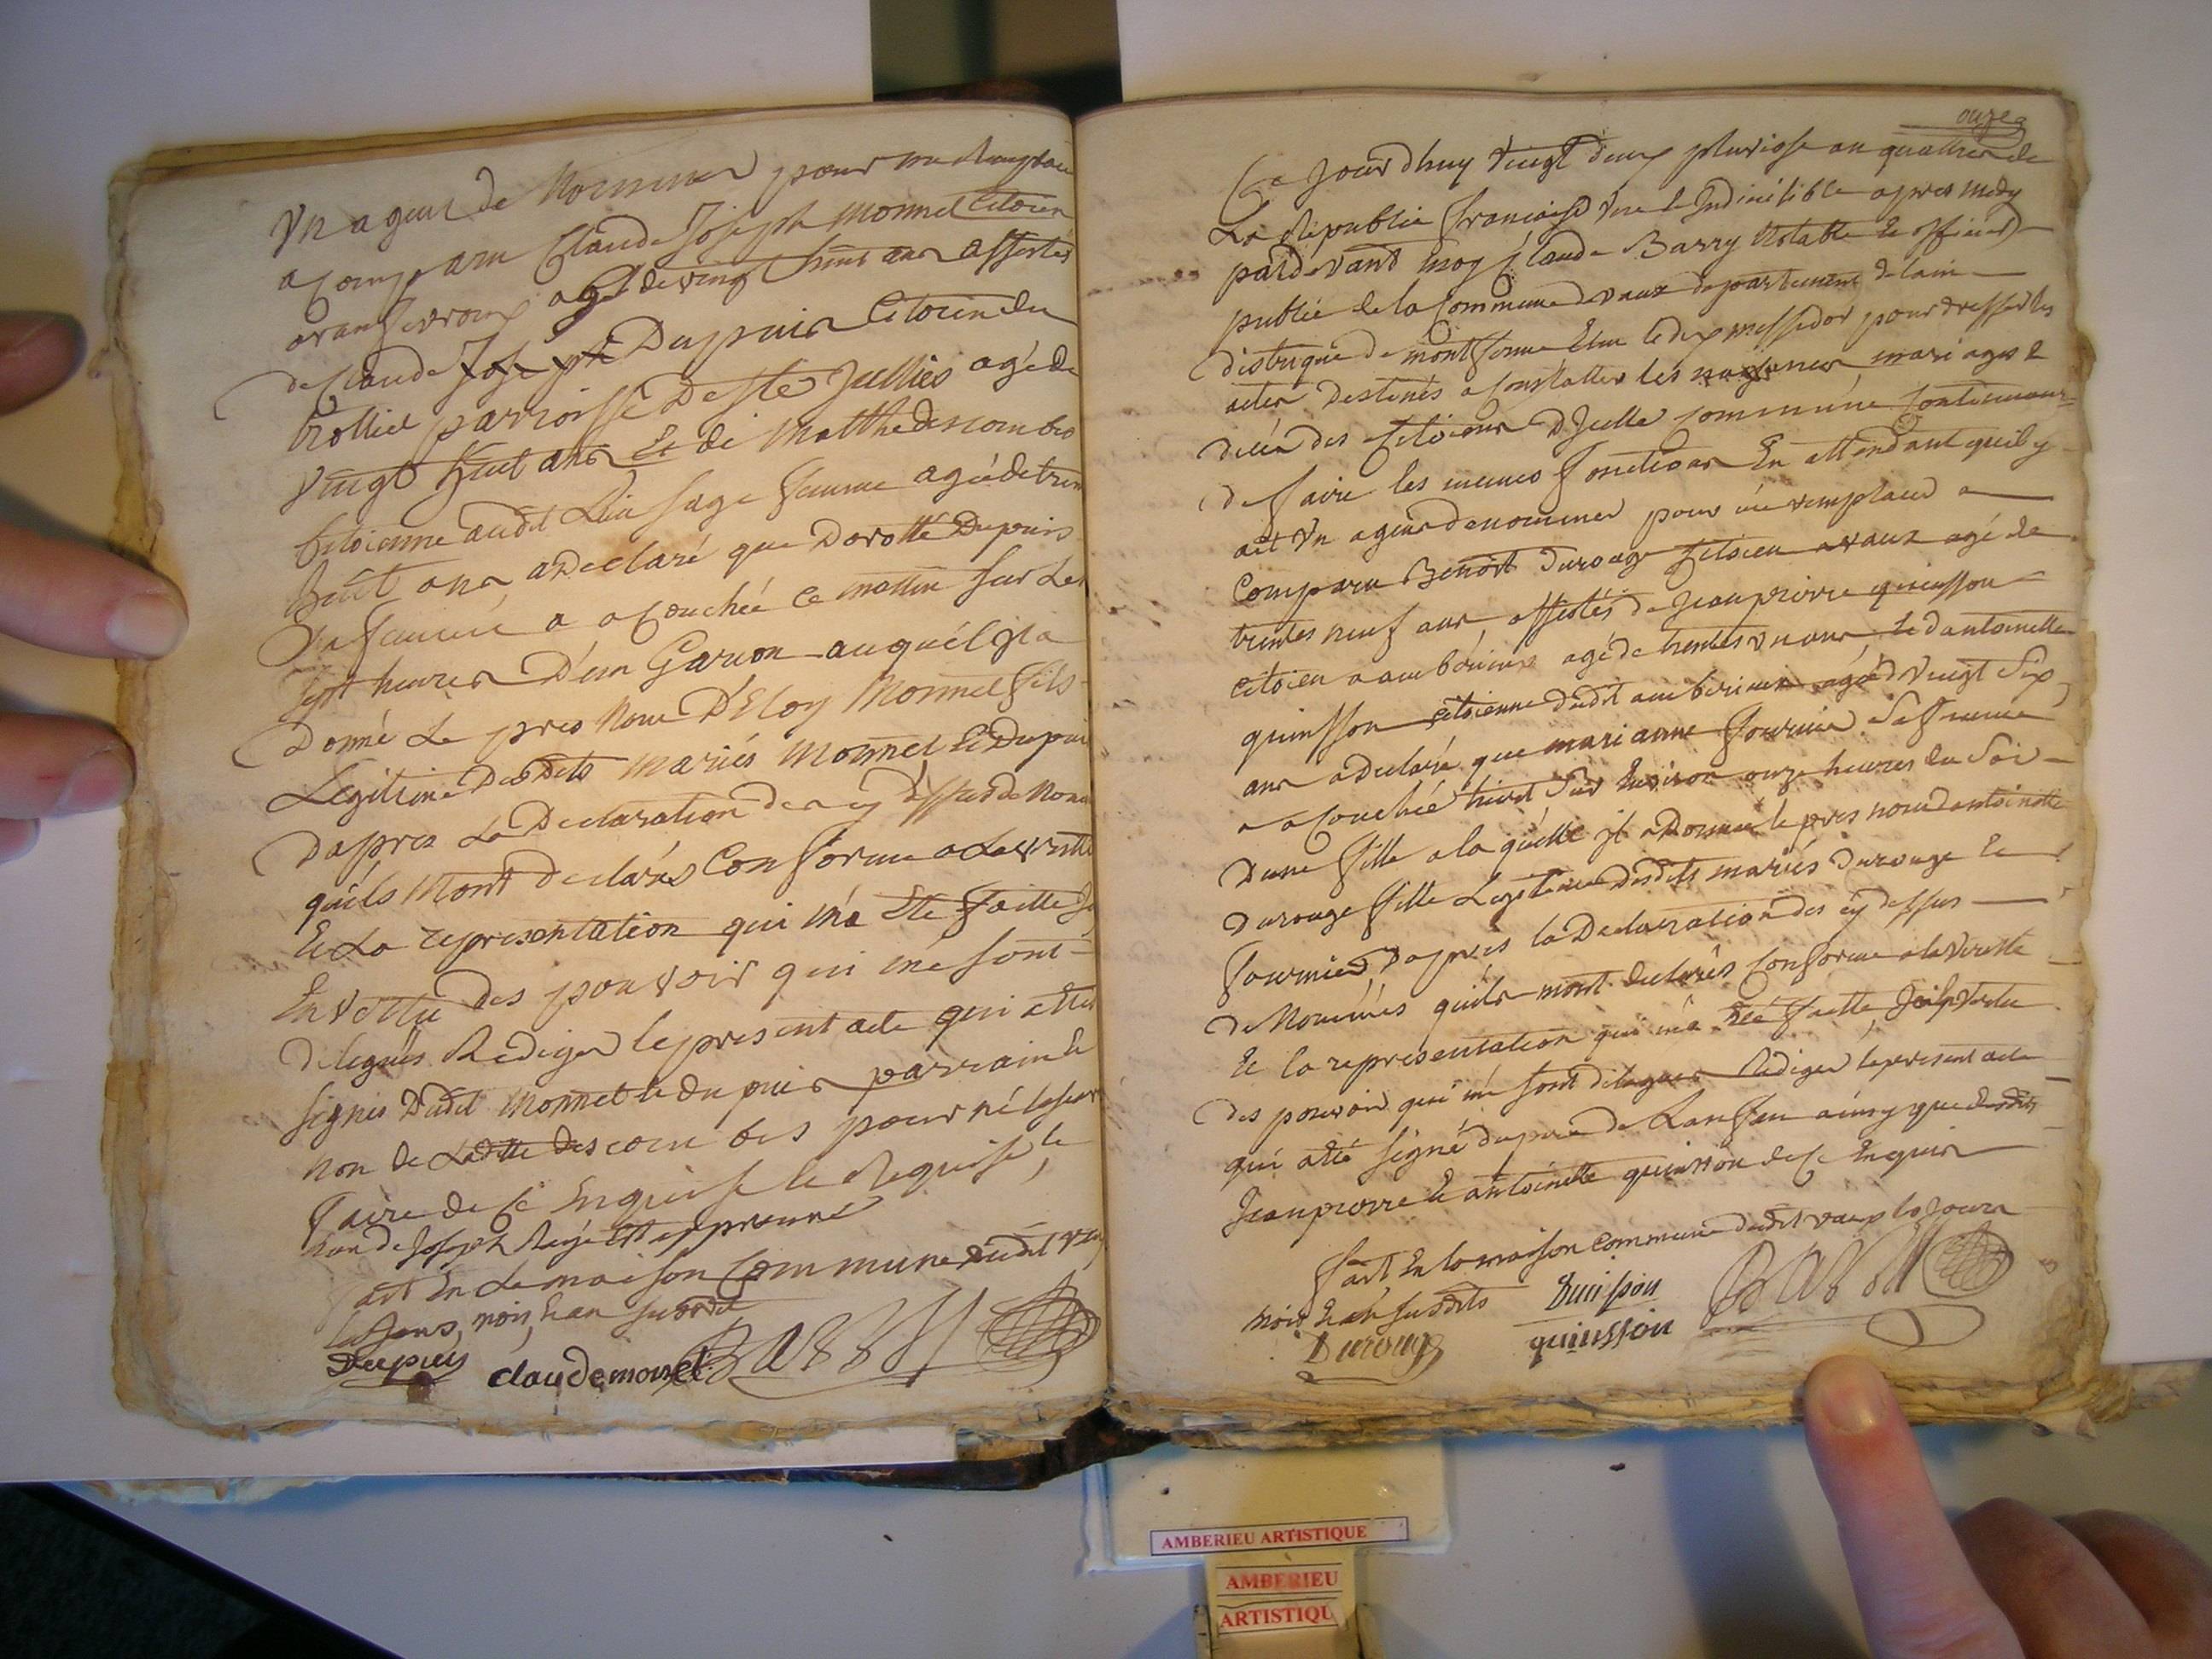 Un agent de Nommer pour me remplacer
a Comparu Claude Joseph Monnel Citoien
agé de vingt huit ans assistés
de Claude Joseph Dupuis Citoien du
parroisse de Ste Jullies agé de
vingt huit ans Et de Matthe descombes
Citoienne audit Lieu sage femme agée de trente
huit ans, a declaré que Dorotté Dupuis
sa femme a acouchée ce mattin sur Les
sept heures D'un Garcon auquél il a
Donné Le pres Nom D'Eloy Monnel fils
Legitime Desdits Mariés Monnel Et Dupuis
Dapres La Declaration des cy dessus de Nommés
quils Mont declarés Conforme a La veritté
Et La representation qui m'a Eté faitte Jay
En vertu des pouvoir qui me sont
delegués Redigé le present acte qui a été
signés Dudit Monnel et dupuis parrain Et
non de Laditte descombes pour ne le savoir
faire de ce Enquise Et Requise,
fait En La maison Commune dudit vaux
les Jour, mois, Et an susdit
Dupuy claude monnel Barry
onze
Ce Jourdhuy vingt deux pluviose an quattrie de
La Republic francaise Une Et Indivisible apres midy
pardevant moy Claude Barry Notable Et officier
public de la Commune de vaux departement de lain
distrique de montferme Elue le dix messidor pour dresser les
actes destinés a Constatter les naissances mariages Et
décés des Citoiens D Jcelle Commune Continuant
de faire les memes fonctions En attendant quil y
ait Un agent de nommer pour me remplacer a
Comparu Benoit durouge Citoien a vaux agé de
trentes neuf ans, assistés de Jean pierre quinsson
Citoien a amberieux agé de trentes un ans, Et dantoinette
quinsson Citoienne dudit amberieux agée d vingt six
ans a declaré que marianne fournier sa femme
a acouchée hier sur Environ onze heures du soir
Dune fille a la quelle il a Donné le pres nom dantoinette
durouge fille Legitime desdits mariés durouge Et
fournier, Dapres la Declaration des cy dessus
de Nommés quils mont declarés Conforme a la veritté
Et la representation qui m'a été faitte Jai En Vertu
des pouvoir qui me sont delegues Redigé le present acte
qui a été signé du pere de Lanfan ainsy que desdits
Jean pierre Et antoinette quinsson de ce Enquis
fait En la maison Commune dudit vaux les Jours
mois Et an susdits quinsson Barry
Durouge quinsson
AMBERIEU ARTISTIQUE
AMBERIEU
ARTISTIQU